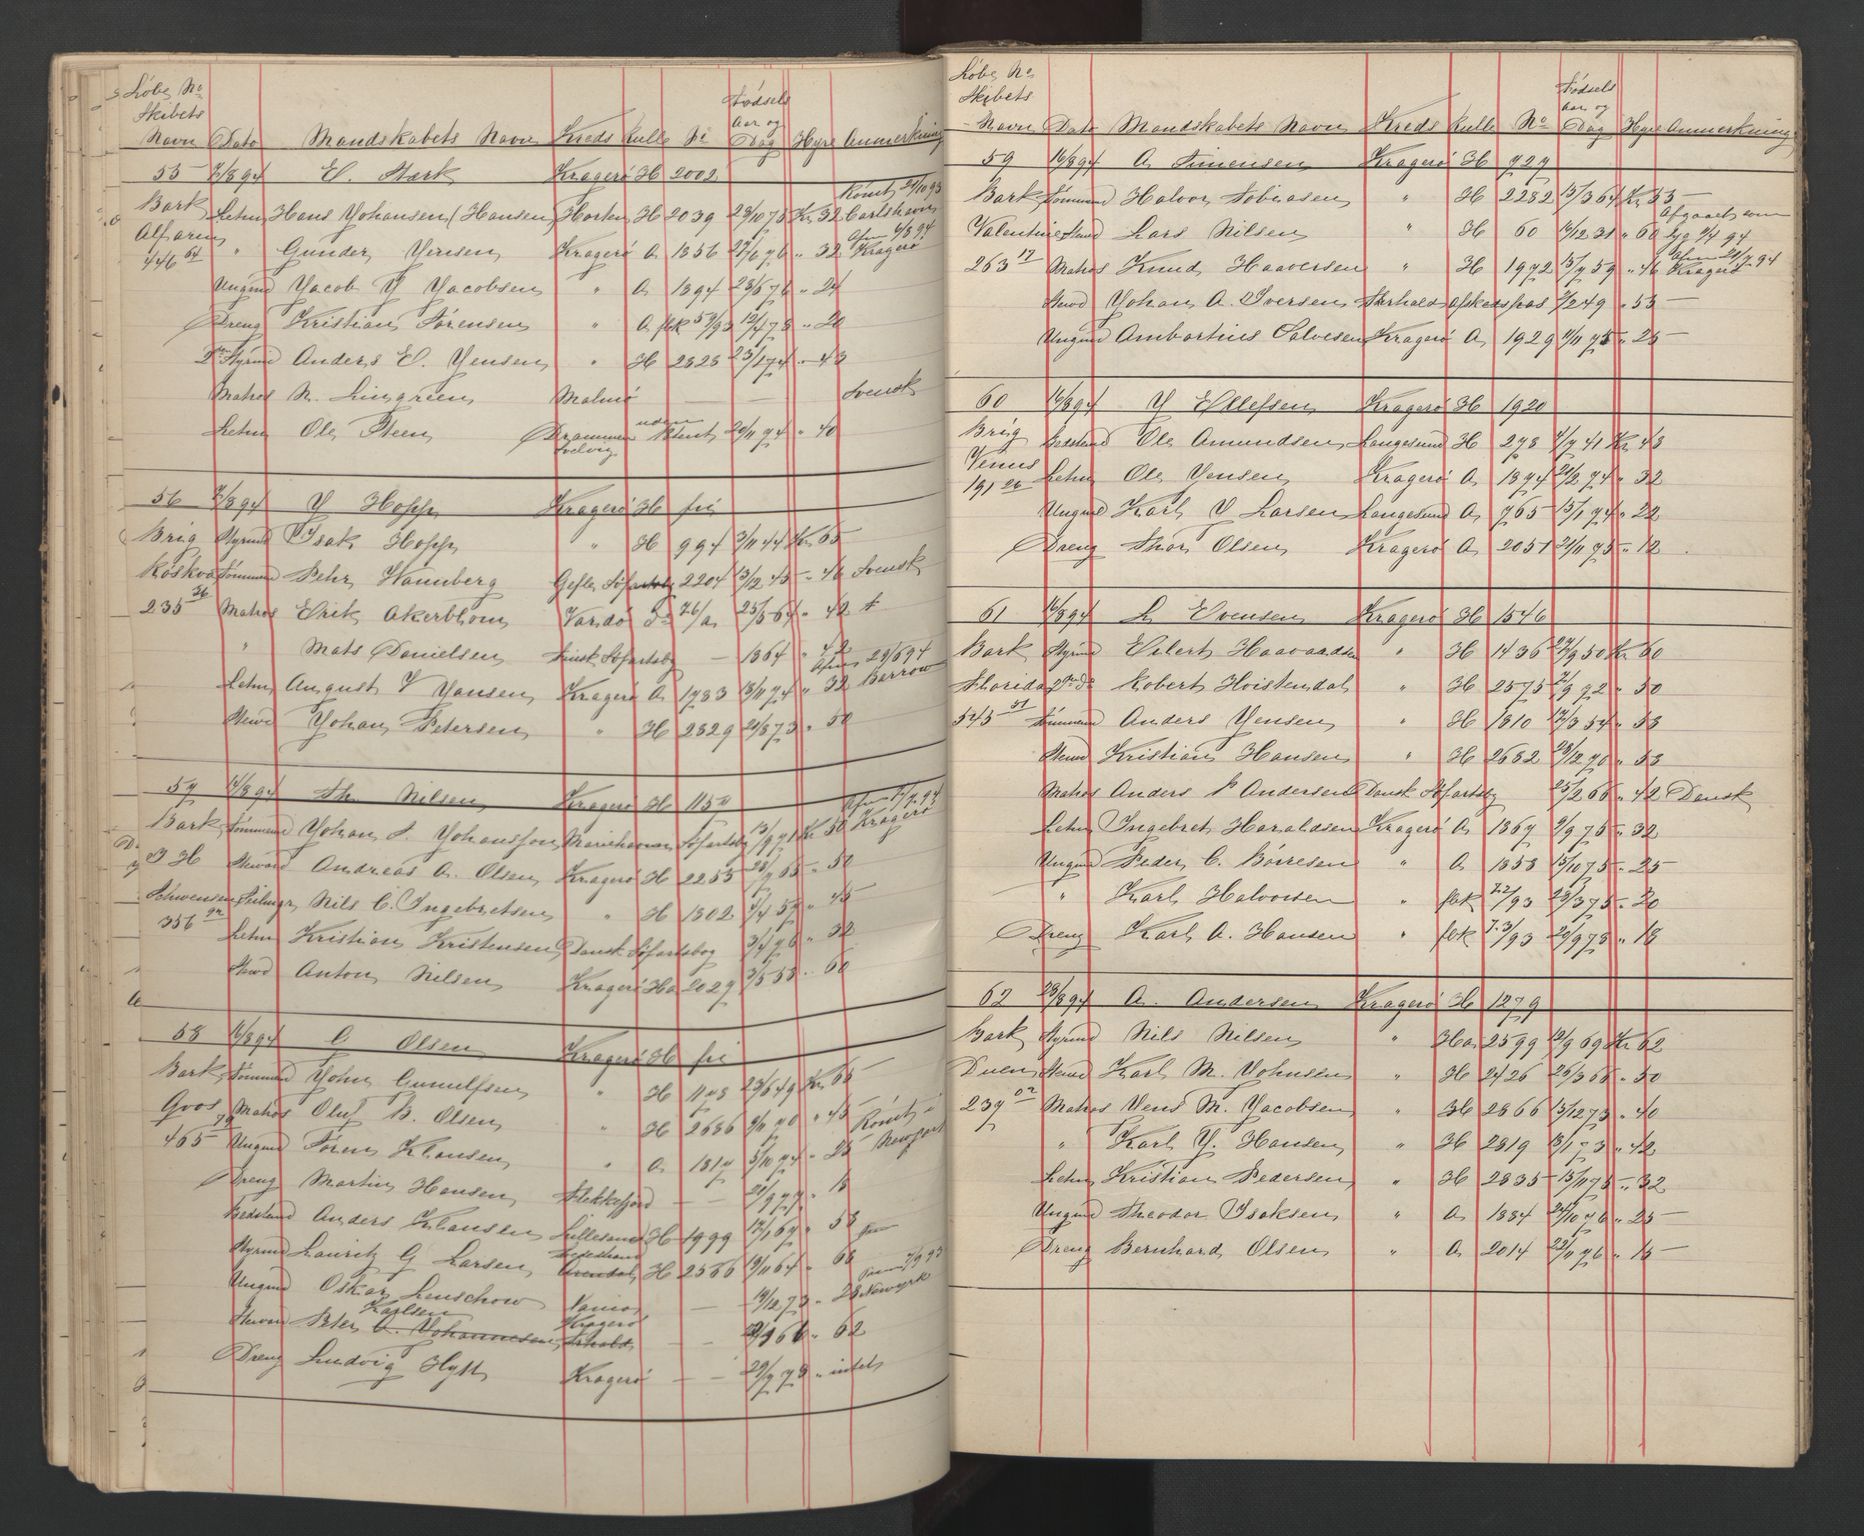 Løbe No
Skibets
Navn Dato Mandskabets Navn Kreds Rulle No Fødsels Aar og Dag Hyre Anmerkning
55 7/8 94 E. Stærk Kragerø H 2002
Bark Letm Hans Johansen (Hansen) Horten H 2039 23/10 75 Kr 32 Rømt 21/10 93 Carlshavn
Alfarin " Gunder Jensen Kragerø A 1856 27/6 76 " 32 Afm 6/8 94 Kragerø
446 64 Ungmd Jacob J Jacobsen " A 1894 23/5 76 " 24
Dreng Kristian Sørensen " A fok 57/93 12/4 78 " 20
2den Styrmd Anders E. Jensen " H 2828 23/1 74 " 43
Matros N. Lingreen Malmø — — Svensk
Letm Ole Steen Drammen Svelvig uden Patent 20/11 74 " 40
56 7/8 94 J Hopp Kragerø H fri
Brig Styrmd Isak Hopp " H 994 3/11 44 Kr 65
Køskoa Tømmermd Pehr Wannberg Gefle Søfartsbg 2204 13/12 45 " 46 Svensk
235 36 Matros Erik Akerblom Vardø Do 76/a 25/5 64 " 42 "
" Mats Danielsen Finsk Søfartsbg — 1864 " 42
Letm August V Jansen Kragerø A 1783 13/11 74 " 32 Afm 29/6 94 Barrow
Stewd Johan Petersen " H 2829 20/8 73 " 50
57 14/8 94 Th. Nilsen Kragerø H 1150
Bark Tømmermd Johan L. Johansson Mariehavn Søfartsbg 13/9 71 Kr 50 Afm 17/9 94 Kragerø
J H Steward Andreas A. Olsen Kragerø H 2255 23/7 65 " 50
Schwensen Seilmgr Nils C. Ingebretsen " H 1302 4/4 57 " 45
356 92 Letm Kristian Kristensen Dansk Søfartsbog 3/4 76 " 32
Stewd Anton Nilsen Kragerø Ha 2027 3/5 53 " 60
58 16/8 94 O Olsen Kragerø H fri
Bark Tømmermd John Gunulfsen " H 1178 23/6 49 Kr 65
Goos Matros Oluf B. Olsen " H 2686 9/11 70 " 45
465 79 Ungmd Søren Klausen " A 1817 5/10 74 " 25 Rømt i Newport
Dreng Martin Hansen Flekkefjord — — 20/9 77 " 18
Bedstemd Anders Klausen Lillesand H 1999 12/1 67 " 53
Styrmd Lauritz G Larsen Lillesand Arendal H 2566 19/11 64 " 66
Ungmd Oskar Lenschow — — 14/12 73 " 28 7/9 93 Newyrk
Stewar Peter Karlsen O. Johannesen Kragerø Arhold — — 19/9 66 " 62
Dreng Ludvig Hytt Kragerø — — 29/7 78 " intet
Løbe No
Skibets
Navn Dato Mandskabets Navn Kreds Rulle No Fødsels Aar og Dag Hyre Anmerkning
59 16/8 94 A Simensen Kragerø H 727
Bark Tømmermd Halvor Tobiasen " H 2282 13/3 64 Kr 55
Valentine Stewd Lars Nilsen " H 60 9/12 31 " 60 Afgaaet som syg 9/4 94
263 17 Matros Knud Haaversen " H 1972 15/7 59 " 46 Afm 21/7 94 Kragerø
Stewd Johan A. Iversen Arhold afskedspas 7/2 49 " 53
Ungmd Ambortius Salvesen Kragerø A 1929 11/11 75 " 25
60 16/8 94 J Ellefsen Kragerø H 1920
Brig Bedstemd Ole Amundsen Langesund H 278 4/7 41 Kr 48
Venus Letm Ole Jensen Kragerø A 1874 22/2 74 " 32
191 26 Ungmd Karl J Larsen Langesund A 765 15/1 74 " 22
Dreng Thor Olsen Kragerø A 2051 21/11 75 " 12
61 16/8 94 L Evensen Kragerø H 1546
Bark Styrmd Eilert Haavardsen " H 1436 27/9 50 Kr 60
Florida 2den do Robert Hoistendal " H 2575 2/9 72 " 50
545 51 Tømmermd Anders Jensen " H 1810 17/3 54 " 53
Stewd Kristian Hansen " H 2682 23/12 70 " 53
Matros Anders P Andersen Dansk Søfartsbg 25/2 66 " 42 Dansk
Letm Ingebret Haraldsen Kragerø A 1867 9/9 75 " 32
Ungmd Peder C. Børresen " A 1858 15/10 75 " 25
" Karl Halvorsen " fok 72/93 23/3 75 " 20
Dreng Karl A. Hansen " fok 73/93 20/9 78 " 18
62 23/8 94 A. Andersen Kragerø H 1279
Bark Styrmd Nils Nilsen " Ha 2599 12/9 69 Kr 62
Duen Stewd Karl M. Johnsen " H 2426 25/3 66 " 50
237 02 Matros Jens M. Jacobsen " H 2866 13/12 73 " 40
" Karl J. Hansen " H 2819 8/1 73 " 42
Letm Kristian Pedersen " H 2835 15/11 75 " 32
Ungmd Theodor Isaksen " A 1884 24/10 76 " 25
Dreng Bernhard Olsen " A 2014 22/11 76 " 15